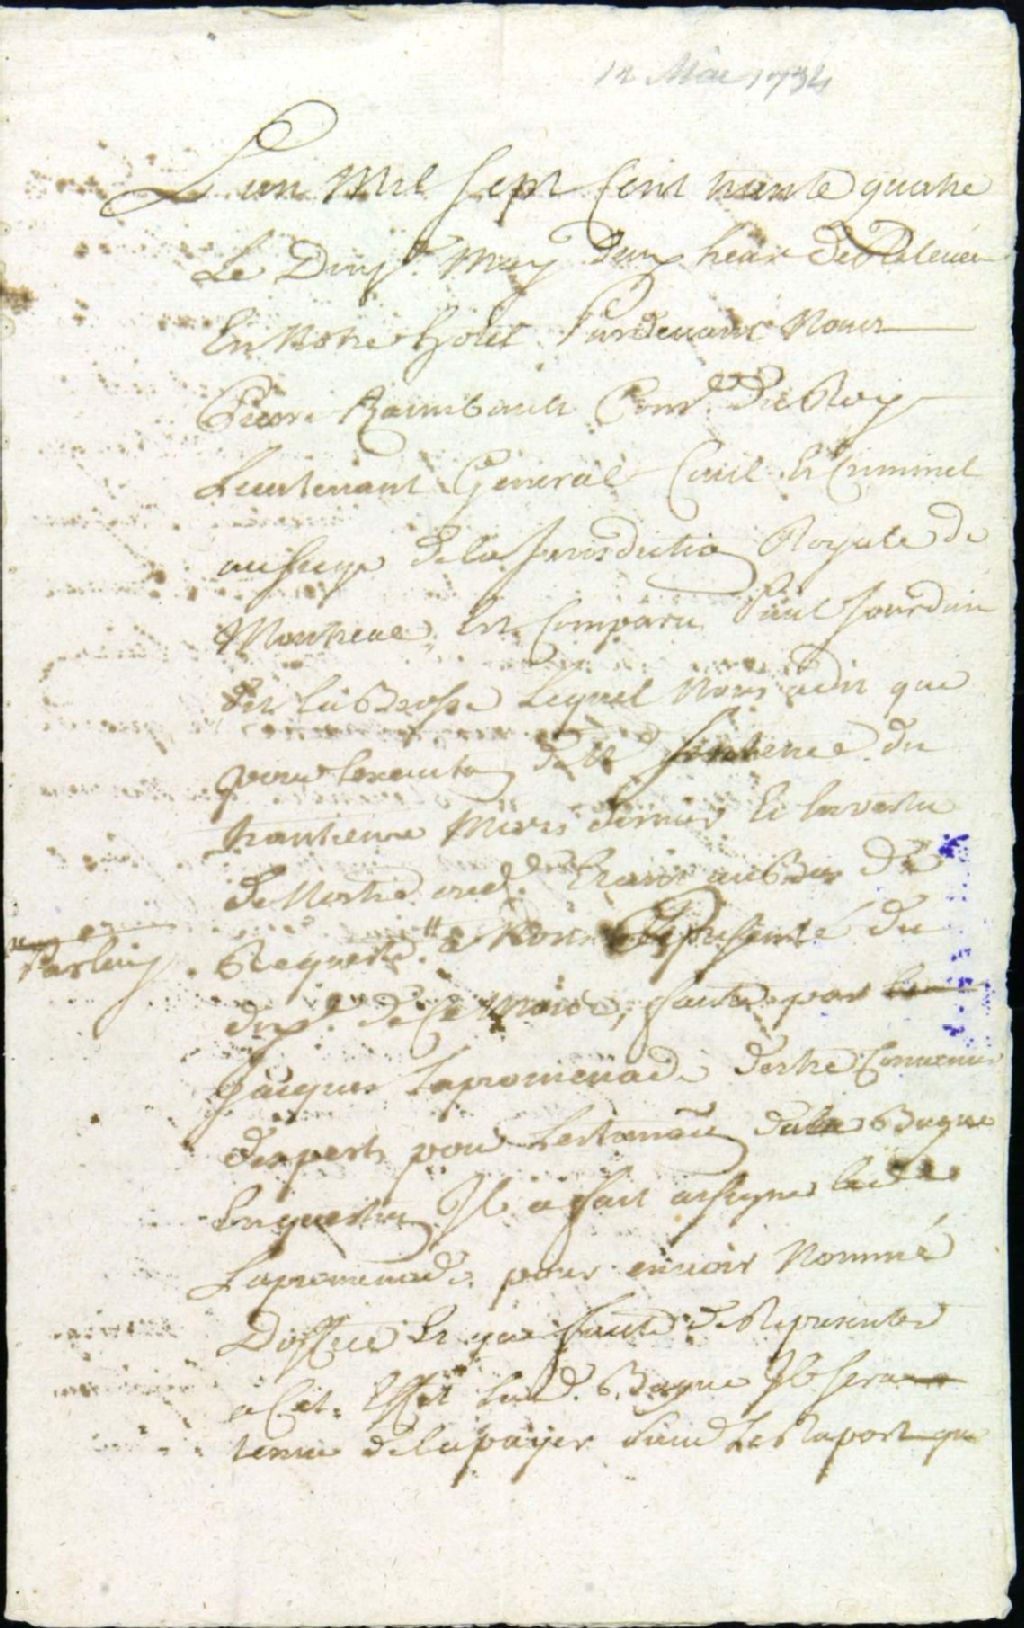 12 Mai 1734
L'an Mil Sept Cent trente quatre
Le Douze May Deux heur de Relevée
En Notre hotel Pardevant Nous
Pierre Raimbault Conser du Roy
Lieutenant General Civil Et Criminel
au siege de la Jurisdiction Royale de
Montreal, Est Comparu Paul Jourdain
dit la Brosse Lequel Nous a dit que
pour lexecution de la Sentence du
trantieme Mars dernier Et En vertu
de Nostre ord. Etant au Bas de
Requeste a Nous Presenté du
par luy
de Ce Mois, faute par
Jacques Lapromenade destre Convenus
dexperts pour Lestimation de la Bague
En question Il a fait assigner led
Lapromenade pour en voir Nommé
Doffice Et que faute de Representer
a Cet Effet lad. Bague Il sera
tenu de la payer suivd Le Raport que